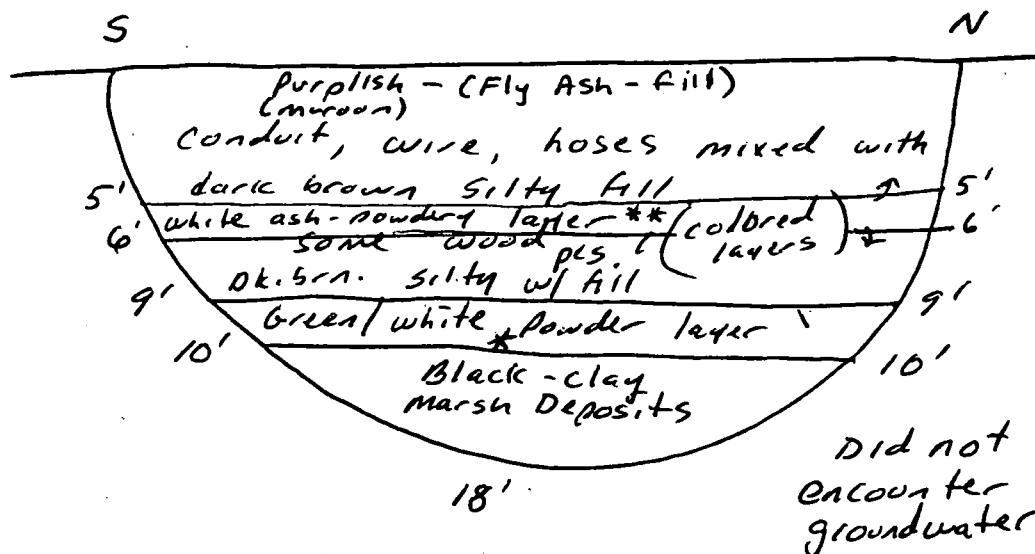 S N
Purplish - (Fly Ash - fill)
(maroon)
Conduit, wire, hoses mixed with
dark brown silty fill
5' 5'
white ash-powdery layer ** (colored
6' 6'
some wood pcs. layers)
Dk. brn. silty w/ fill
9' 9'
Green/white powder layer
*
10' 10'
Black - clay
Marsh Deposits
18'
Did not
encounter
groundwater